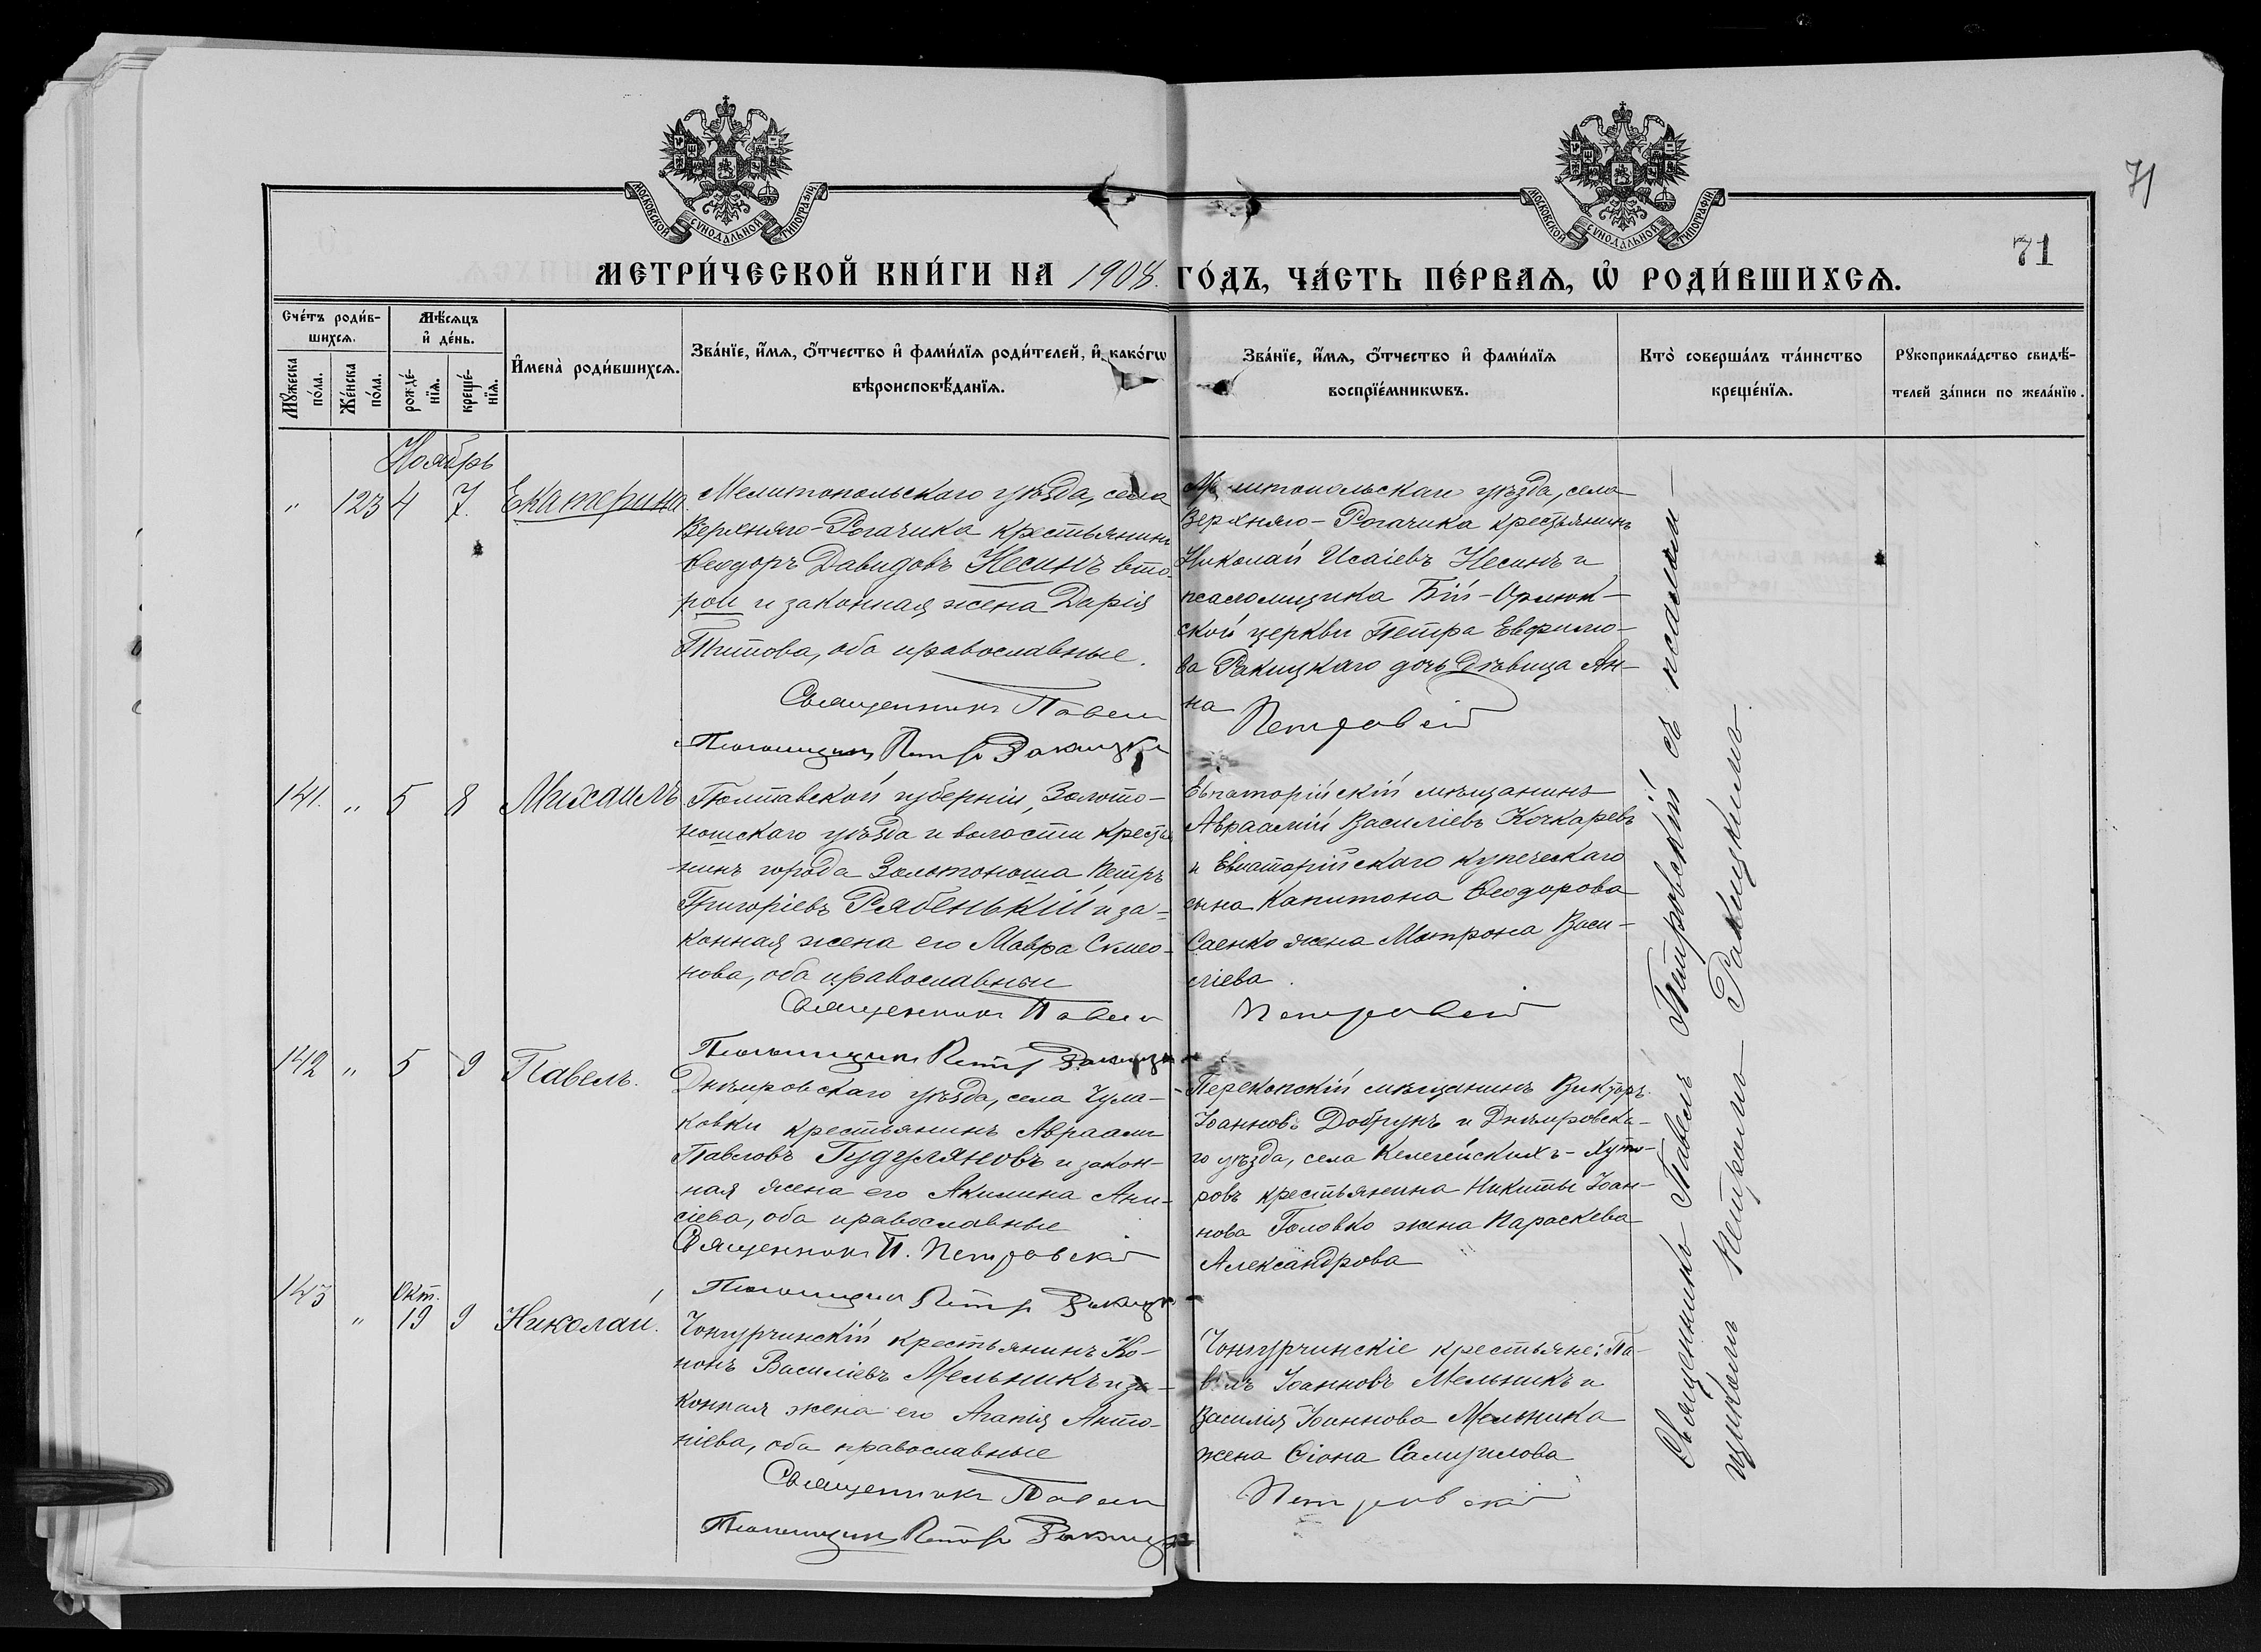 71
МОСКОВСКОЙ СѴНОДАЛЬНОЙ ТИПОГРАФІИ
МОСКОВСКОЙ СѴНОДАЛЬНОЙ ТИПОГРАФІИ
71
МЕТРИ́ЧЕСКОЙ КНИ́ГИ НА 1908. ГО́ДЪ, ЧА́СТЬ ПЕ́РВАѦ, Ѡ҆ РОДИ́ВШИХСѦ.
Сче́тъ роди́в-
шихсѧ.
Мꙋ́жеска по́ла.
Же́нска по́ла.
Мѣ́сѧцъ
и҆ де́нь.
рожде́-
нїѧ.
креще́-
нїѧ.
И҆мена̀ роди́вшихсѧ.
Зва́нїе, и҆́мѧ, ѻ҆́тчество и҆ фами́лїѧ роди́телей, и҆ како́гѡ
вѣроисповѣ́данїѧ.
Зва́нїе, и҆́мѧ, ѻ҆́тчество и҆ фами́лїѧ
воспрїе́мникѡвъ.
Кто̀ соверша́лъ та́инство
креще́нїѧ.
Рꙋкоприкла́дство свидѣ́-
телей за́писи по жела́нїю.
Ноябрь
" 123 4 7. Екатерина.
Мелитопольскаго уѣзда, села
Верхняго-Рогачика крестьянинъ
Ѳеодоръ Давидовъ Несинъ вто-
рой и законная жена Дарія
Титова, оба православные.
Священникъ Павелъ
Псаломщикъ Петръ Ракицкій
Мелитопольскаго уѣзда, села
Верхняго-Рогачика крестьянинъ
Николай Исаіевъ Несинъ и
псаломщика Бій-Орлюк-
ской церкви Петра Евфимо-
ва Ракицкаго дочь дѣвица Ан-
на
Петровскій
141. " 5 8 Михаилъ
Полтавской губерніи, Золото-
ношскаго уѣзда и волости крестья
нинъ города Золотоноша Петръ
Григоріевъ Рябенькій и за-
конная жена его Мавра Симео-
нова, оба православные
Священникъ Павелъ
Псаломщикъ Петръ Ракицкій
Евпаторійскій мѣщанинъ
Авраамій Василіевъ Кочкаревъ
и Евпаторійскаго купеческаго
сына Капитона Ѳеодорова
Саенко жена Матрона Васи-
ліева.
Петровскій
142 " 5 9 Павелъ.
Днѣпровскаго уѣзда, села Чула-
ковки крестьянинъ Авраамъ
Павловъ Гудуляновъ и закон-
ная жена его Акилина Ани-
сіева, оба православные
Священникъ П. Петровскій
Псаломщикъ Петръ Ракицкій
Перекопскій мѣщанинъ Викторъ
Іоанновъ Добчукъ и Днѣпровска-
го уѣзда, села Келегейскихъ-Хуто-
ровъ крестьянина Никиты Іоан-
нова Головко жена Параскева
Александрова
143 " Окт. 19 9 Николай.
Чонгурчинскій крестьянинъ Ко-
нонъ Василіевъ Мельникъ и за-
конная жена его Агапія Анто-
ніева, оба православные
Священникъ Павелъ
Псаломщикъ Петръ Ракицкій
Чонгурчинскіе крестьяне: Па-
велъ Іоанновъ Мельникъ и
Василія Іоаннова Мельника
жена Самуилова
Петровскій
Священникъ Павелъ Петровскій съ псалом-
щикомъ Петромъ Ракицкимъ.